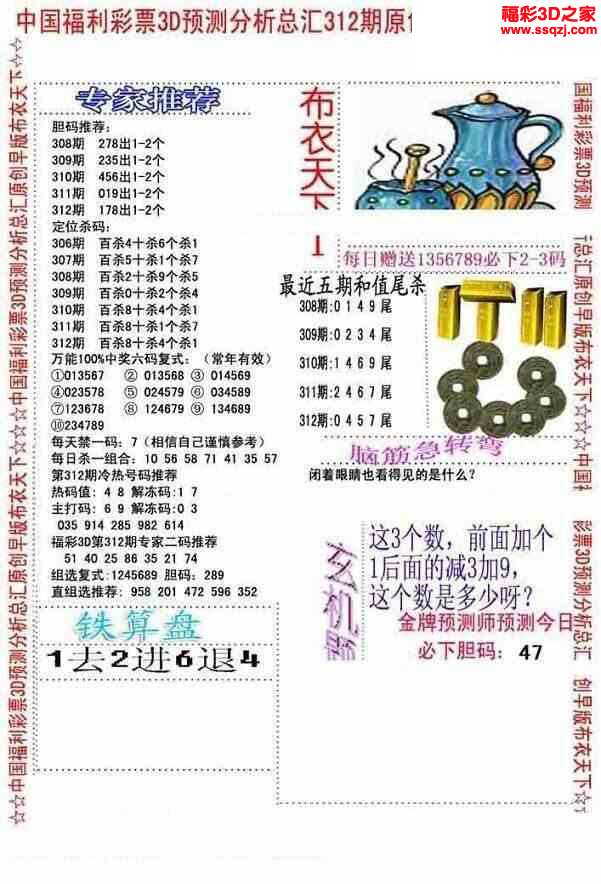 中国福利彩票3D预测分析总汇312期原
福彩3D之家
www.ssqzj.com
☆☆中国福利彩票3D预测分析总汇原创早版布衣天下☆☆☆中国福利彩票3D预测分析总汇原创早版布衣天下☆
专家推荐
胆码推荐：
308期 278出1-2个
309期 235出1-2个
310期 456出1-2个
311期 019出1-2个
312期 178出1-2个
定位杀码：
306期 百杀4十杀6个杀1
307期 百杀5十杀1个杀7
308期 百杀2十杀9个杀5
309期 百杀0十杀2个杀4
310期 百杀8十杀4个杀1
311期 百杀1十杀4个杀7
312期 百杀8十杀4个杀1
万能100%中奖六码复式：（常年有效）
①013567 ② 013568 ③ 014569
④023578 ⑤ 024579 ⑥ 034589
⑦123678 ⑧ 124679 ⑨ 134689
⑩234789
每天禁一码：7（相信自己谨慎参考）
每日杀一组合：10 56 58 71 41 35 57
第312期冷热号码推荐
热码值：4 8 解冻码：1 7
主打码：6 9 解冻码：0 3
035 914 285 982 614
福彩3D第312期专家二码推荐
51 40 25 86 35 21 74
组选复式：1245689 胆码：289
直组选推荐：958 201 472 596 352
铁算盘
1去2进6退4
布衣天下
1
每日赠送1356789必下2-3码
最近五期和值尾杀
308期:0 1 4 9 尾
309期:0 2 3 4 尾
310期:1 4 6 9 尾
311期:2 4 6 7 尾
312期:0 4 5 7 尾
脑筋急转弯
闭着眼睛也看得见的是什么？
玄机
这3个数，前面加个
1后面的减3加9，
这个数是多少呀？
金牌预测师预测今日
必下胆码： 47
国福利彩票3D预测
总汇原创早版布衣天下☆☆☆中国
彩票3D预测分析总汇 创早版布衣天下☆☆